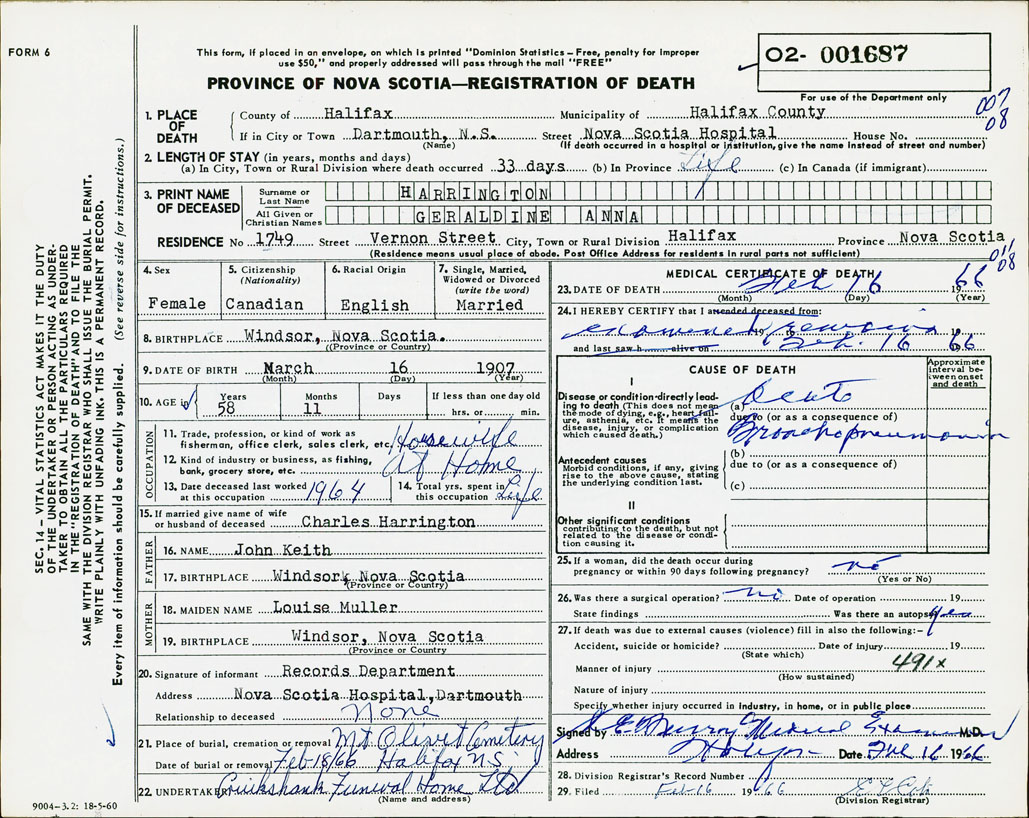 FORM 6
This form, if placed in an envelope, on which is printed "Dominion Statistics – Free, penalty for improper
use $50," and properly addressed will pass through the mail "FREE"
PROVINCE OF NOVA SCOTIA—REGISTRATION OF DEATH
02- 001687
For use of the Department only
007
08
1. PLACE OF DEATH
County of Halifax Municipality of Halifax County
If in City or Town Dartmouth, N.S. Street Nova Scotia Hospital House No.
(Name) (If death occurred in a hospital or institution, give the name instead of street and number)
2. LENGTH OF STAY (in years, months and days)
(a) In City, Town or Rural Division where death occurred 33 days (b) In Province Life (c) In Canada (if immigrant)
3. PRINT NAME OF DECEASED
Surname or Last Name HARRINGTON
All Given or Christian Names GERALDINE ANNA
RESIDENCE No 1749 Street Vernon Street City, Town or Rural Division Halifax Province Nova Scotia
(Residence means usual place of abode. Post Office Address for residents in rural parts not sufficient)
011
08
4. Sex
Female
5. Citizenship
(Nationality)
Canadian
6. Racial Origin
English
7. Single, Married,
Widowed or Divorced
(write the word)
Married
8. BIRTHPLACE Windsor, Nova Scotia.
(Province or Country)
9. DATE OF BIRTH March 16 1907
(Month) (Day) (Year)
10. AGE in Years Months Days If less than one day old
58 11 hrs. or min.
OCCUPATION
11. Trade, profession, or kind of work as
fisherman, office clerk, sales clerk, etc. Housewife
12. Kind of industry or business, as fishing,
bank, grocery store, etc. At Home
13. Date deceased last worked
at this occupation 1964
14. Total yrs. spent in
this occupation Life
15. If married give name of wife
or husband of deceased Charles Harrington
FATHER
16. NAME John Keith
17. BIRTHPLACE Windsor, Nova Scotia
(Province or Country)
MOTHER
18. MAIDEN NAME Louise Muller
19. BIRTHPLACE Windsor, Nova Scotia
(Province or Country
20. Signature of informant Records Department
Address Nova Scotia Hospital, Dartmouth
Relationship to deceased None
21. Place of burial, cremation or removal Mt Olivet Cemetery
Date of burial or removal Feb 18/66 Halifax NS
22. UNDERTAKER Cruikshank Funeral Home Ltd
(Name and address)
9004–3.2: 18-5-60
MEDICAL CERTIFICATE OF DEATH
23. DATE OF DEATH Feb 16 1966
(Month) (Day) (Year)
24. I HEREBY CERTIFY that I attended deceased from:
examined remains 19 19
and last saw h alive on Feb. 16 1966
CAUSE OF DEATH
Approximate
interval be-
tween onset
and death
I
Disease or condition directly lead-
ing to death (This does not mean
the mode of dying, e.g., heart fail-
ure, asthenia, etc. It means the
disease, injury, or complication
which caused death.)
(a) Acute
due to (or as a consequence of)
Bronchopneumonia
Antecedent causes
Morbid conditions, if any, giving
rise to the above cause, stating
the underlying condition last.
(b)
due to (or as a consequence of)
(c)
II
Other significant conditions
contributing to the death, but not
related to the disease or condi-
tion causing it.
25. If a woman, did the death occur during
pregnancy or within 90 days following pregnancy? no
(Yes or No)
26. Was there a surgical operation? no Date of operation 19
State findings Was there an autopsy yes
27. If death was due to external causes (violence) fill in also the following:–
Accident, suicide or homicide? Date of injury 19
(State which)
491x
Manner of injury
(How sustained)
Nature of injury
Specify whether injury occurred in industry, in home, or in public place
Signed by Medical M.D.
Address Date Feb 16 1966
28. Division Registrar's Record Number
29. Filed Feb 16 1966
(Division Registrar)
SEC. 14 – VITAL STATISTICS ACT MAKES IT THE DUTY
OF THE UNDERTAKER OR PERSON ACTING AS UNDER-
TAKER TO OBTAIN ALL THE PARTICULARS REQUIRED
IN THE "REGISTRATION OF DEATH" AND TO FILE THE
SAME WITH THE DIVISION REGISTRAR WHO SHALL ISSUE THE BURIAL PERMIT.
WRITE PLAINLY WITH UNFADING INK. THIS IS A PERMANENT RECORD.
Every item of information should be carefully supplied. (See reverse side for instructions.)